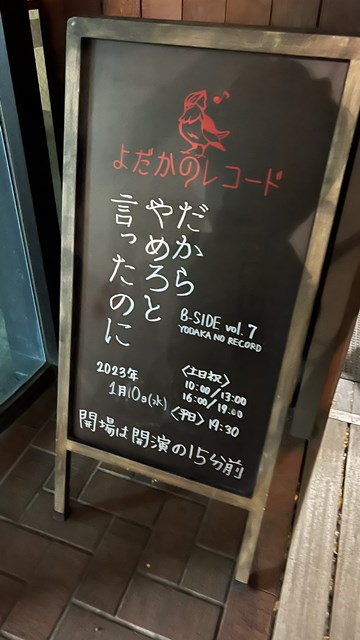 よだかのレコード
だから
やめろと
言ったのに
B-SIDE vol.7
YODAKA NO RECORD
2023年
1月10日(水)
〈土日祝〉
10:00/13:00
16:00/19:00
〈平日〉19:30
開場は開演の15分前